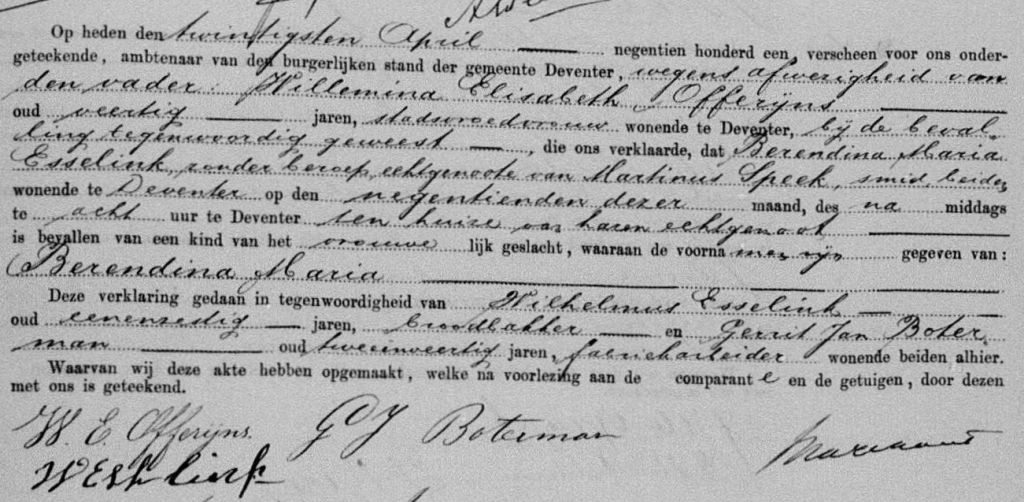 Op heden den twintigsten April negentien honderd een, verscheen voor ons onder-
geteekende, ambtenaar van den burgerlijken stand der gemeente Deventer, wegens afwezigheid van
den vader: Willemina Elisabeth Offerijns
oud veertig jaren, stadsvroedvrouw wonende te Deventer, bij de beval-
ling tegenwoordig geweest, die ons verklaarde, dat Berendina Maria
Esselink, zonder beroep, echtgenoote van Martinus Speek, smid, beiden
wonende te Deventer op den negentienden dezer maand, des na middags
te acht uur te Deventer ten huize van haren echtgenoot
is bevallen van een kind van het vrouwe lijk geslacht, waaraan de voorna men zijn gegeven van:
Berendina Maria
Deze verklaring gedaan in tegenwoordigheid van Wilhelmus Esselink
oud eenenzestig jaren, broodbakker en Gerrit Jan Boter
man oud tweeenveertig jaren, fabriekarbeider wonende beiden alhier.
Waarvan wij deze akte hebben opgemaakt, welke na voorlezing aan de comparant e en de getuigen, door dezen
met ons is geteekend.
W. E. Offerijns. G J Boterman
W Esselink